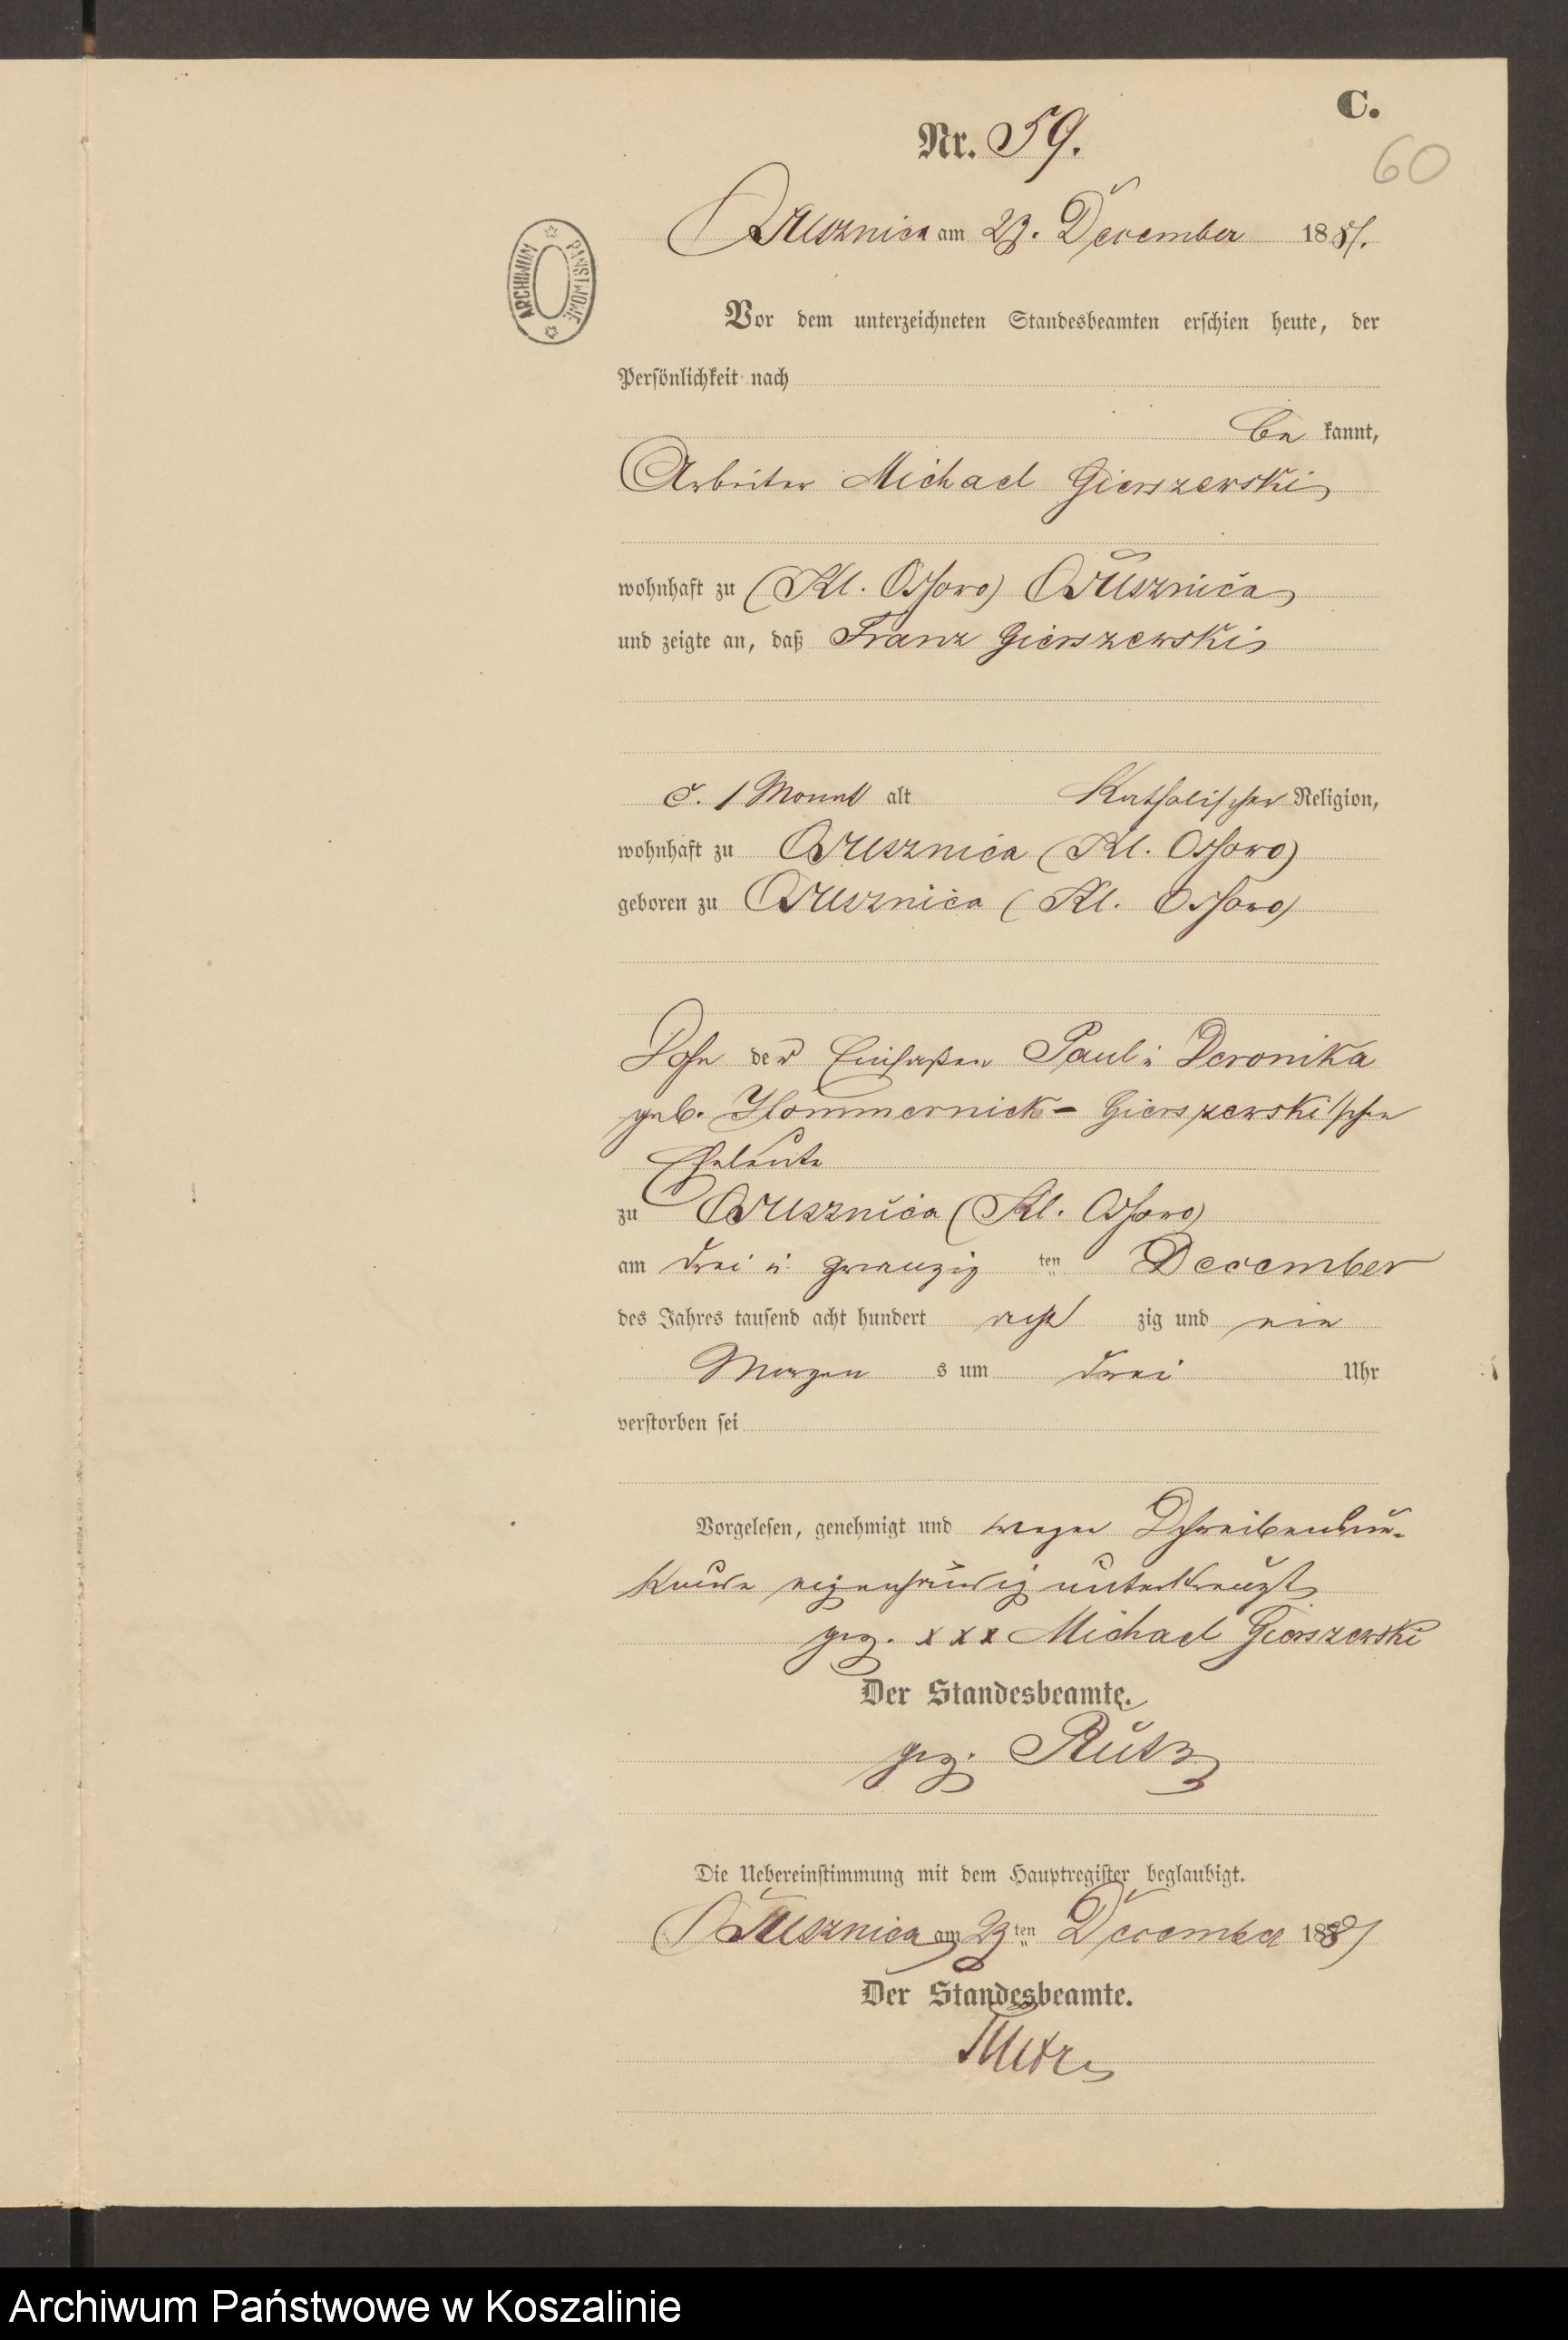 C.
Nr. 59.
60
Prusznica am 23. December 1881.
ARCHIWUM PAŃSTWOWE
Vor dem unterzeichneten Standesbeamten erschien heute, der
Persönlichkeit nach
be kannt,
Arbeiter Michael Gierszewski
wohnhaft zu (Kl. Ossowo)
und zeigte an, daß Franz Gierszewski
c. 1 Monat alt Katholischer Religion,
wohnhaft zu (Kl. Ossowo)
geboren zu (Kl. Ossowo)
Sohn der Einsaßen Paul u Veronika
geb. Gierszewski'schen
Eheleute
zu (Kl. Ossowo)
am drei u zwanzig ten December
des Jahres tausend acht hundert acht zig und ein
Morgen s um drei Uhr
verstorben sei
Vorgelesen, genehmigt und wegen Schreibensun-
kunde eigenhändig unterkreuzt
gez. xxx Michael Gierszewski
Der Standesbeamte.
gez.
Die Uebereinstimmung mit dem Hauptregister beglaubigt.
am 23 ten December 1881
Der Standesbeamte.
Archiwum Państwowe w Koszalinie